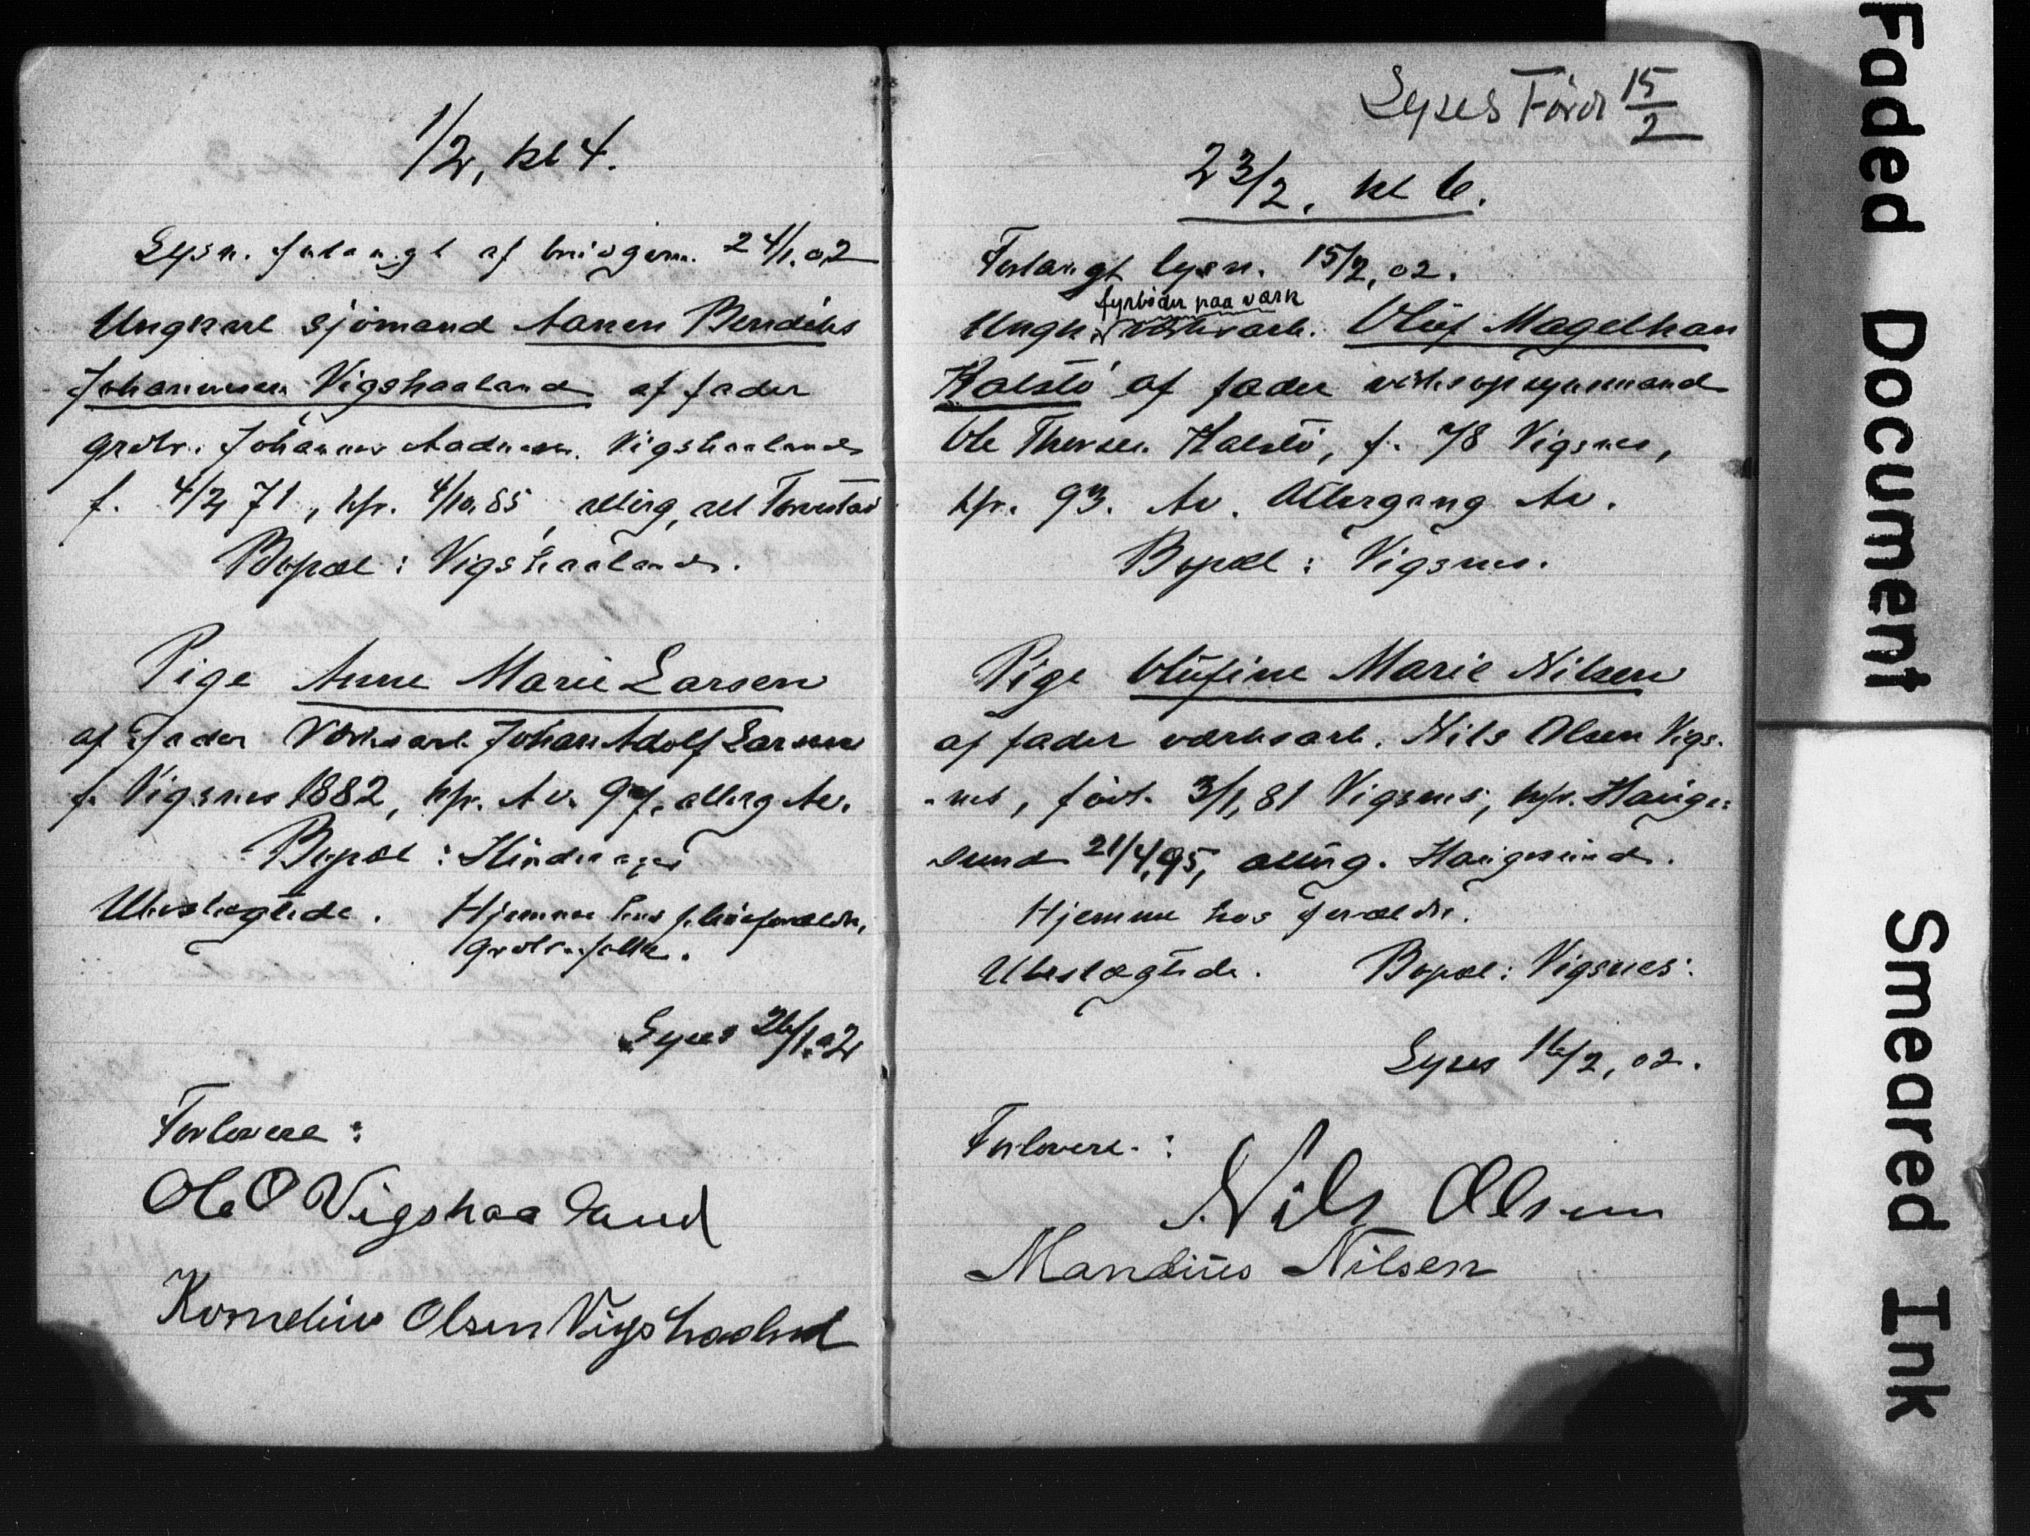 1/2, kl 4.
Lysn. forlangt af brudgom. 24/1.02
Ungkarl sjömand Aanen Bendiks
Johannesen Vigshaaland af fader
grdbr. Johannes Aadnesen Vigshaaland
f. 4/2, 71, kfr. 4/10.85, altrg, alt Torvestad
Bopæl: Vigshaaland.
Pige Anne Marie Larsen
af fader Værksarb. Johan Adolf Larsen
f. Vigsnes 1882, kfr. Av. 97, altrg Av.
Bopæl:
Ubeslægtede. Hjemme hos pleieforældre,
grdbr.folk.
Lyses 26/1.02
Forlovere:
Ole O Vigshaaland
Kornelius Olsen Vigshaaland
Lyses Förd 15/2
23/2, kl 6.
Forlangt lysn. 15/2, 02.
fyrböder paa værk
Ungk. værksarb. Oluf Magelhan
Kalstö af fader verksopsynsmand
Ole Thorsen Kalstö, f. 78 Vigsnes,
kfr. 93. Av. Altergang Av.
Bopæl: Vigsnes.
Pige Olufine Marie Nilsen
af fader værksarb. Nils Olsen Vigs-
nes, född. 3/1, 81 Vigsnes, kfr. Hauge-
sund 21/4, 95, altrg. Haugesund.
Hjemme hos forældre.
Ubeslægtede. Bopæl: Vigsnes.
Lyses 16/2, 02.
Forlovere:
Nils Olsen
Mandius Nilsen
Faded Document
Smeared Ink